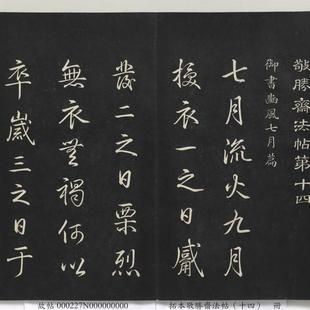 敬勝齋法帖第十四
御書豳風七月篇
七月流火九月
授衣一之日觱
發二之日栗烈
無衣無褐何以
卒歲三之日于
故帖 000227N000000000
拓本敬勝齋法帖(十四) 冊